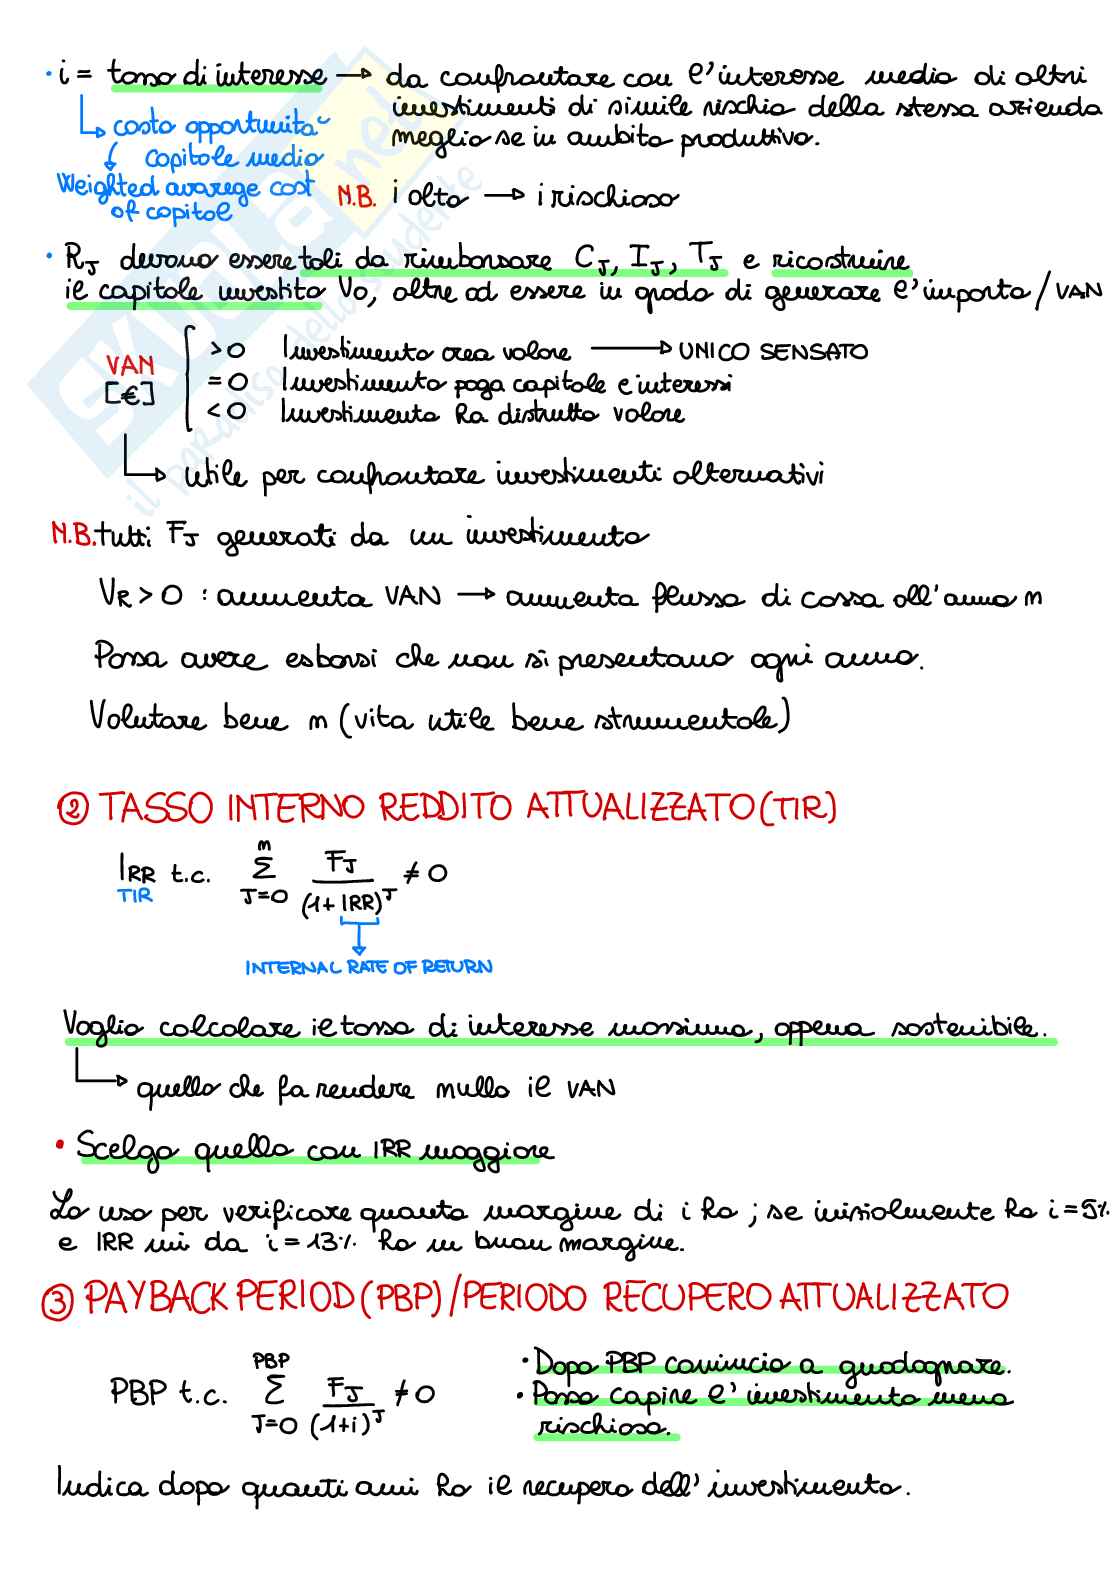 • i = tasso di interesse → da confrontare con l'interesse medio di altri
investimenti di simile rischio della stessa azienda
meglio se in ambito produttivo.
costo opportunità
capitale medio
Weighted avarege cost
of capitol
N.B. i alto → i rischioso
• RJ devono essere tali da rimborsare CJ, IJ, TJ e ricostruire
il capitale investito V0, oltre ad essere in grado di generare l'importo/VAN
VAN
[€]
>0 Investimento crea valore → UNICO SENSATO
=0 Investimento paga capitale e interessi
<0 Investimento ha distrutto valore
utile per confrontare investimenti alternativi
N.B. tutti FJ generati da un investimento
VR>0 : aumenta VAN → aumenta flusso di cassa all'anno m
Possa avere esborsi che non si presentano ogni anno.
Valutare bene m (vita utile bene strumentale)
② TASSO INTERNO REDDITO ATTUALIZZATO (TIR)
IRR t.c. m Σ J=0 FJ/(1+IRR)^J ≠ 0
TIR
INTERNAL RATE OF RETURN
Voglio calcolare il tasso di interesse massimo, appena sostenibile.
quello che fa rendere nullo il VAN
• Scelgo quello con IRR maggiore
Lo uso per verificare quanto margine di i ho ; se inizialmente ho i=5%
e IRR mi da i=13% ho un buon margine.
③ PAYBACK PERIOD (PBP) / PERIODO RECUPERO ATTUALIZZATO
PBP t.c. PBP Σ J=0 FJ/(1+i)^J ≠ 0
• Dopo PBP comincio a guadagnare.
• Posso capire l'investimento meno
rischioso.
Indica dopo quanti anni ho il recupero dell'investimento.
skuola.net
il paradiso dello studente